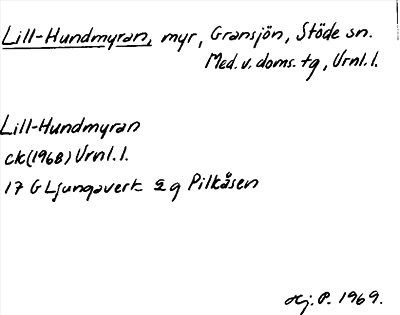 Lill-Hundmyran, myr, Gransjön, Stöde sn.
Med. v. doms. tg, Vrnl. l.
Lill-Hundmyran
ck (1968) Vrnl. l.
17 G Ljungaverk 2 g Pilkåsen
Hj. P. 1969.